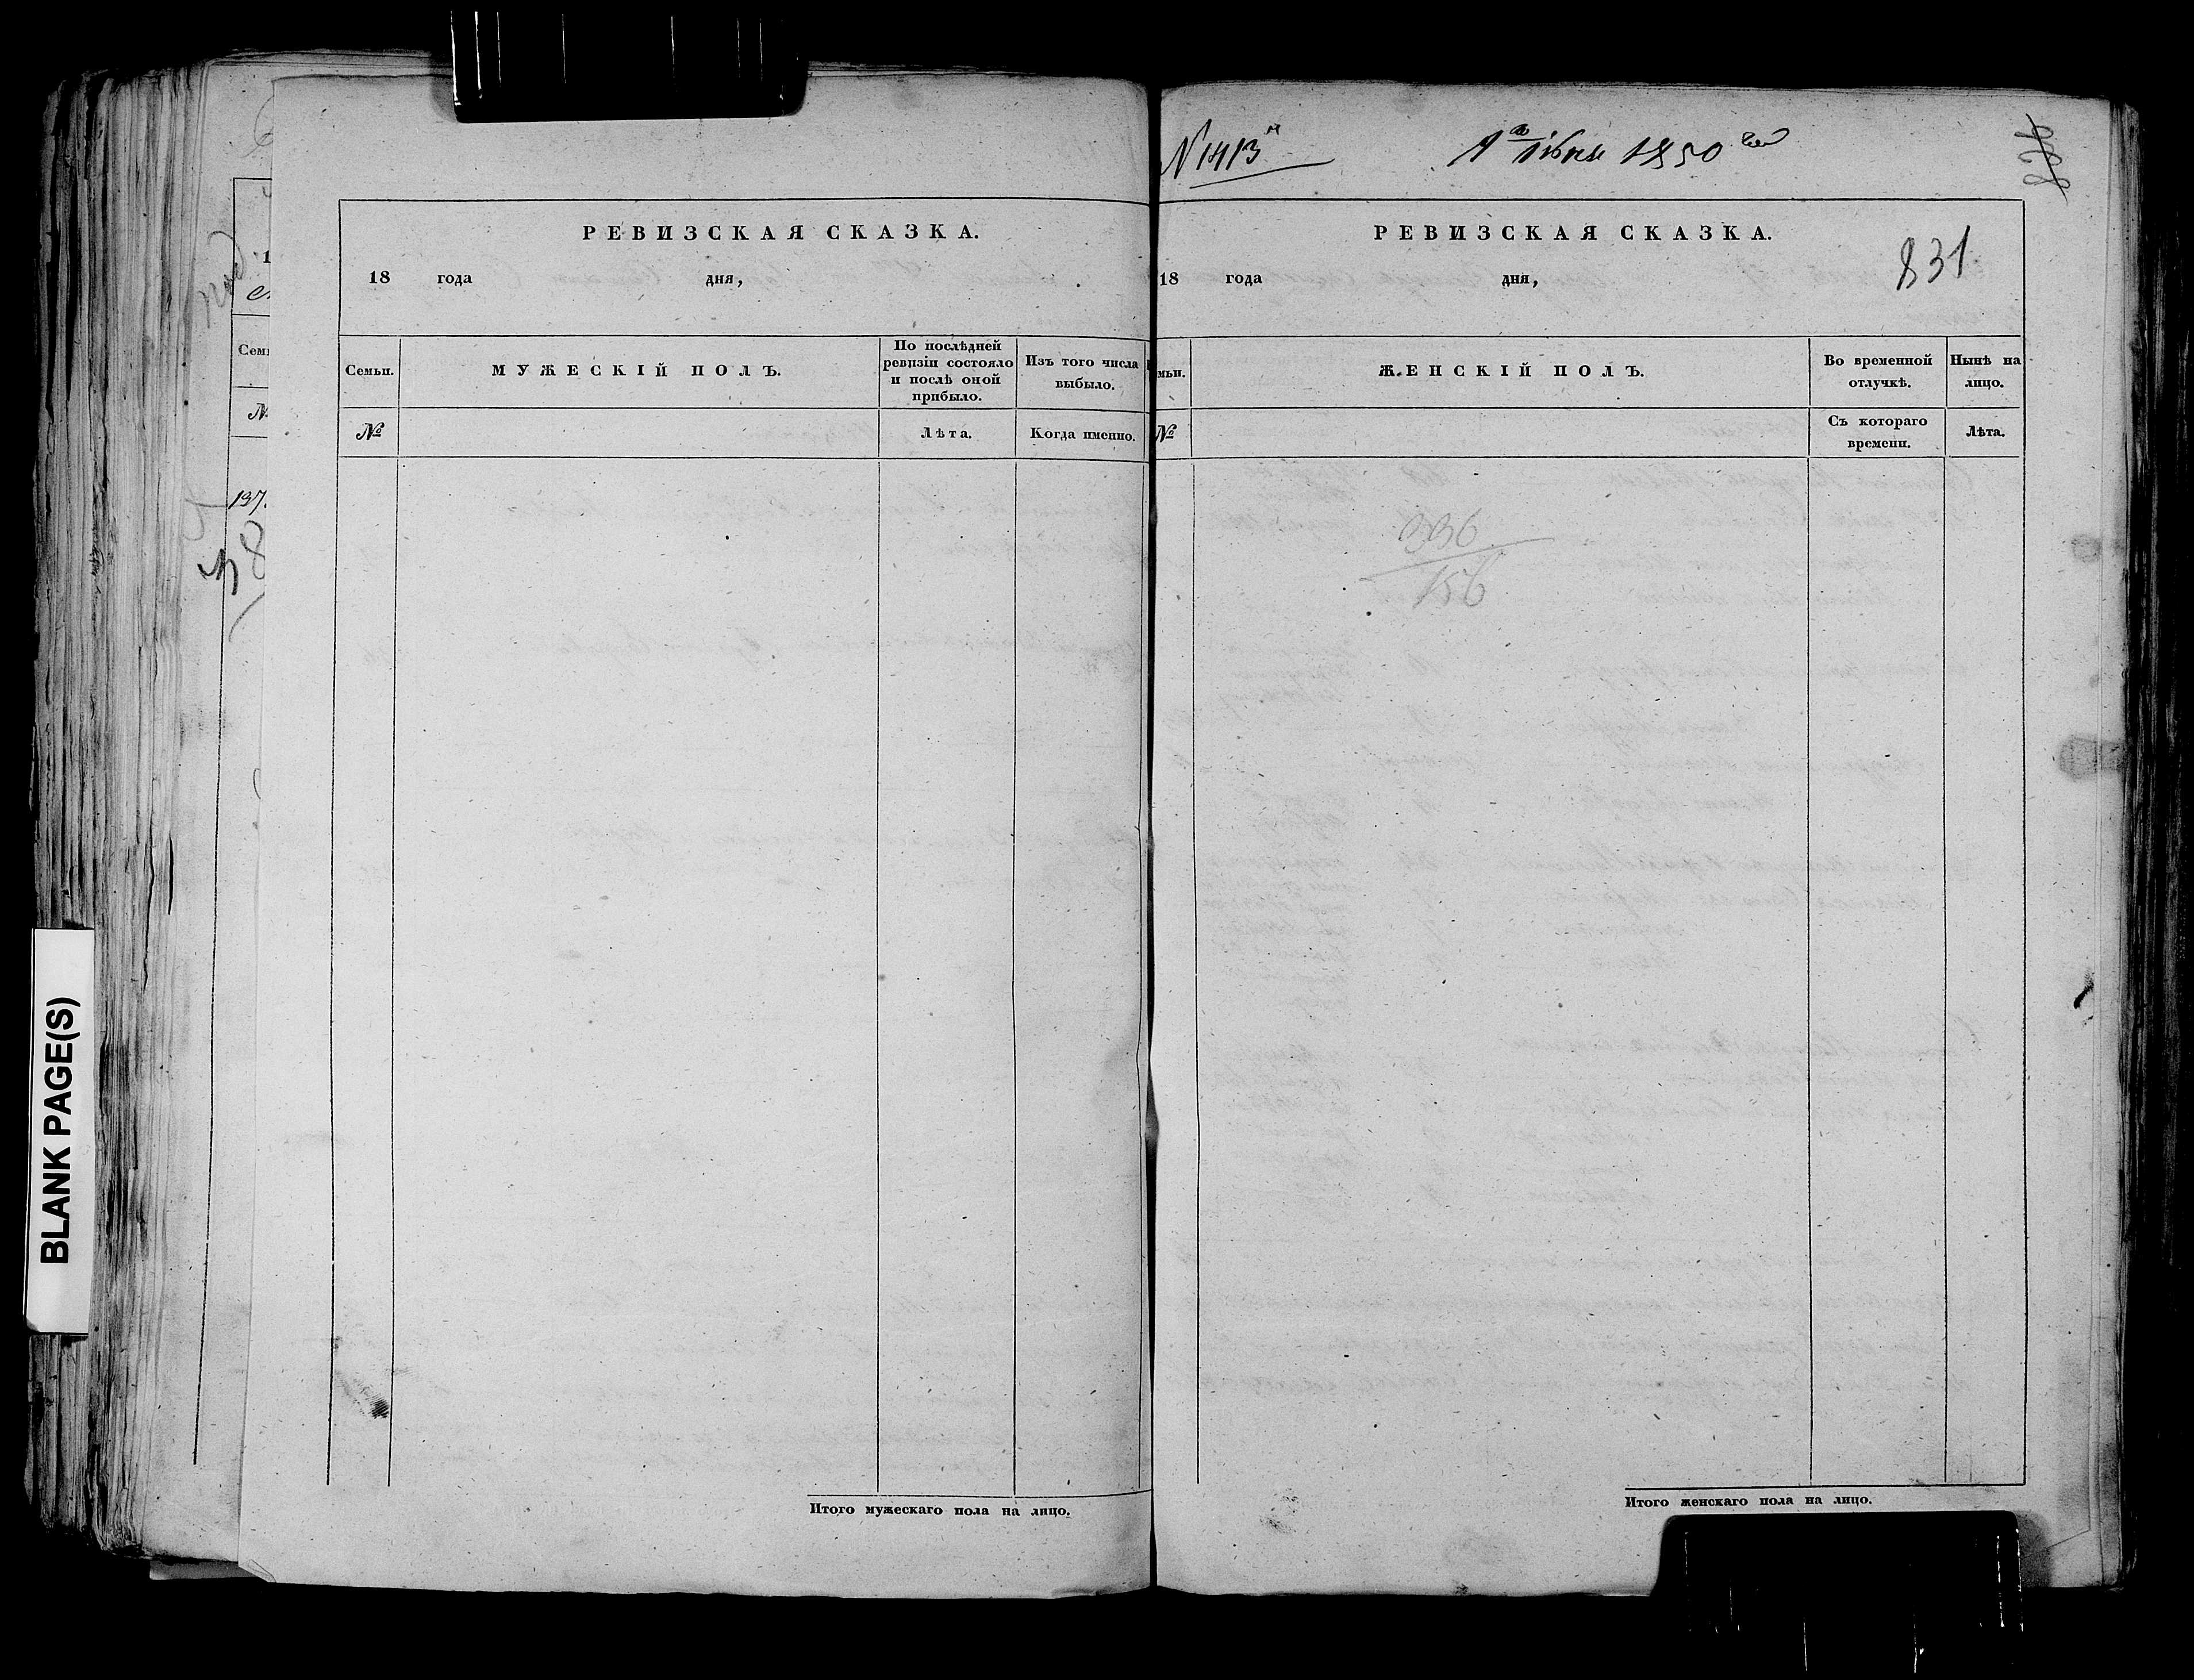 BLANK PAGE(S)
Семь
№
137.
РЕВИЗСКАЯ СКАЗКА.
18 года дня,
Семьи.
МУЖЕСКІЙ ПОЛЪ.
По послѣдней ревизіи состояло и послѣ оной прибыло.
Изъ того числа выбыло.
№
Лѣта.
Когда именно.
Итого мужескаго пола на лицо.
N 1413
1850
831
РЕВИЗСКАЯ СКАЗКА.
18 года дня,
мьи.
ЖЕНСКІЙ ПОЛЪ.
Во временной отлучкѣ.
Нынѣ на лицо.
№
Съ котораго времени.
Лѣта.
336
156
Итого женскаго пола на лицо.